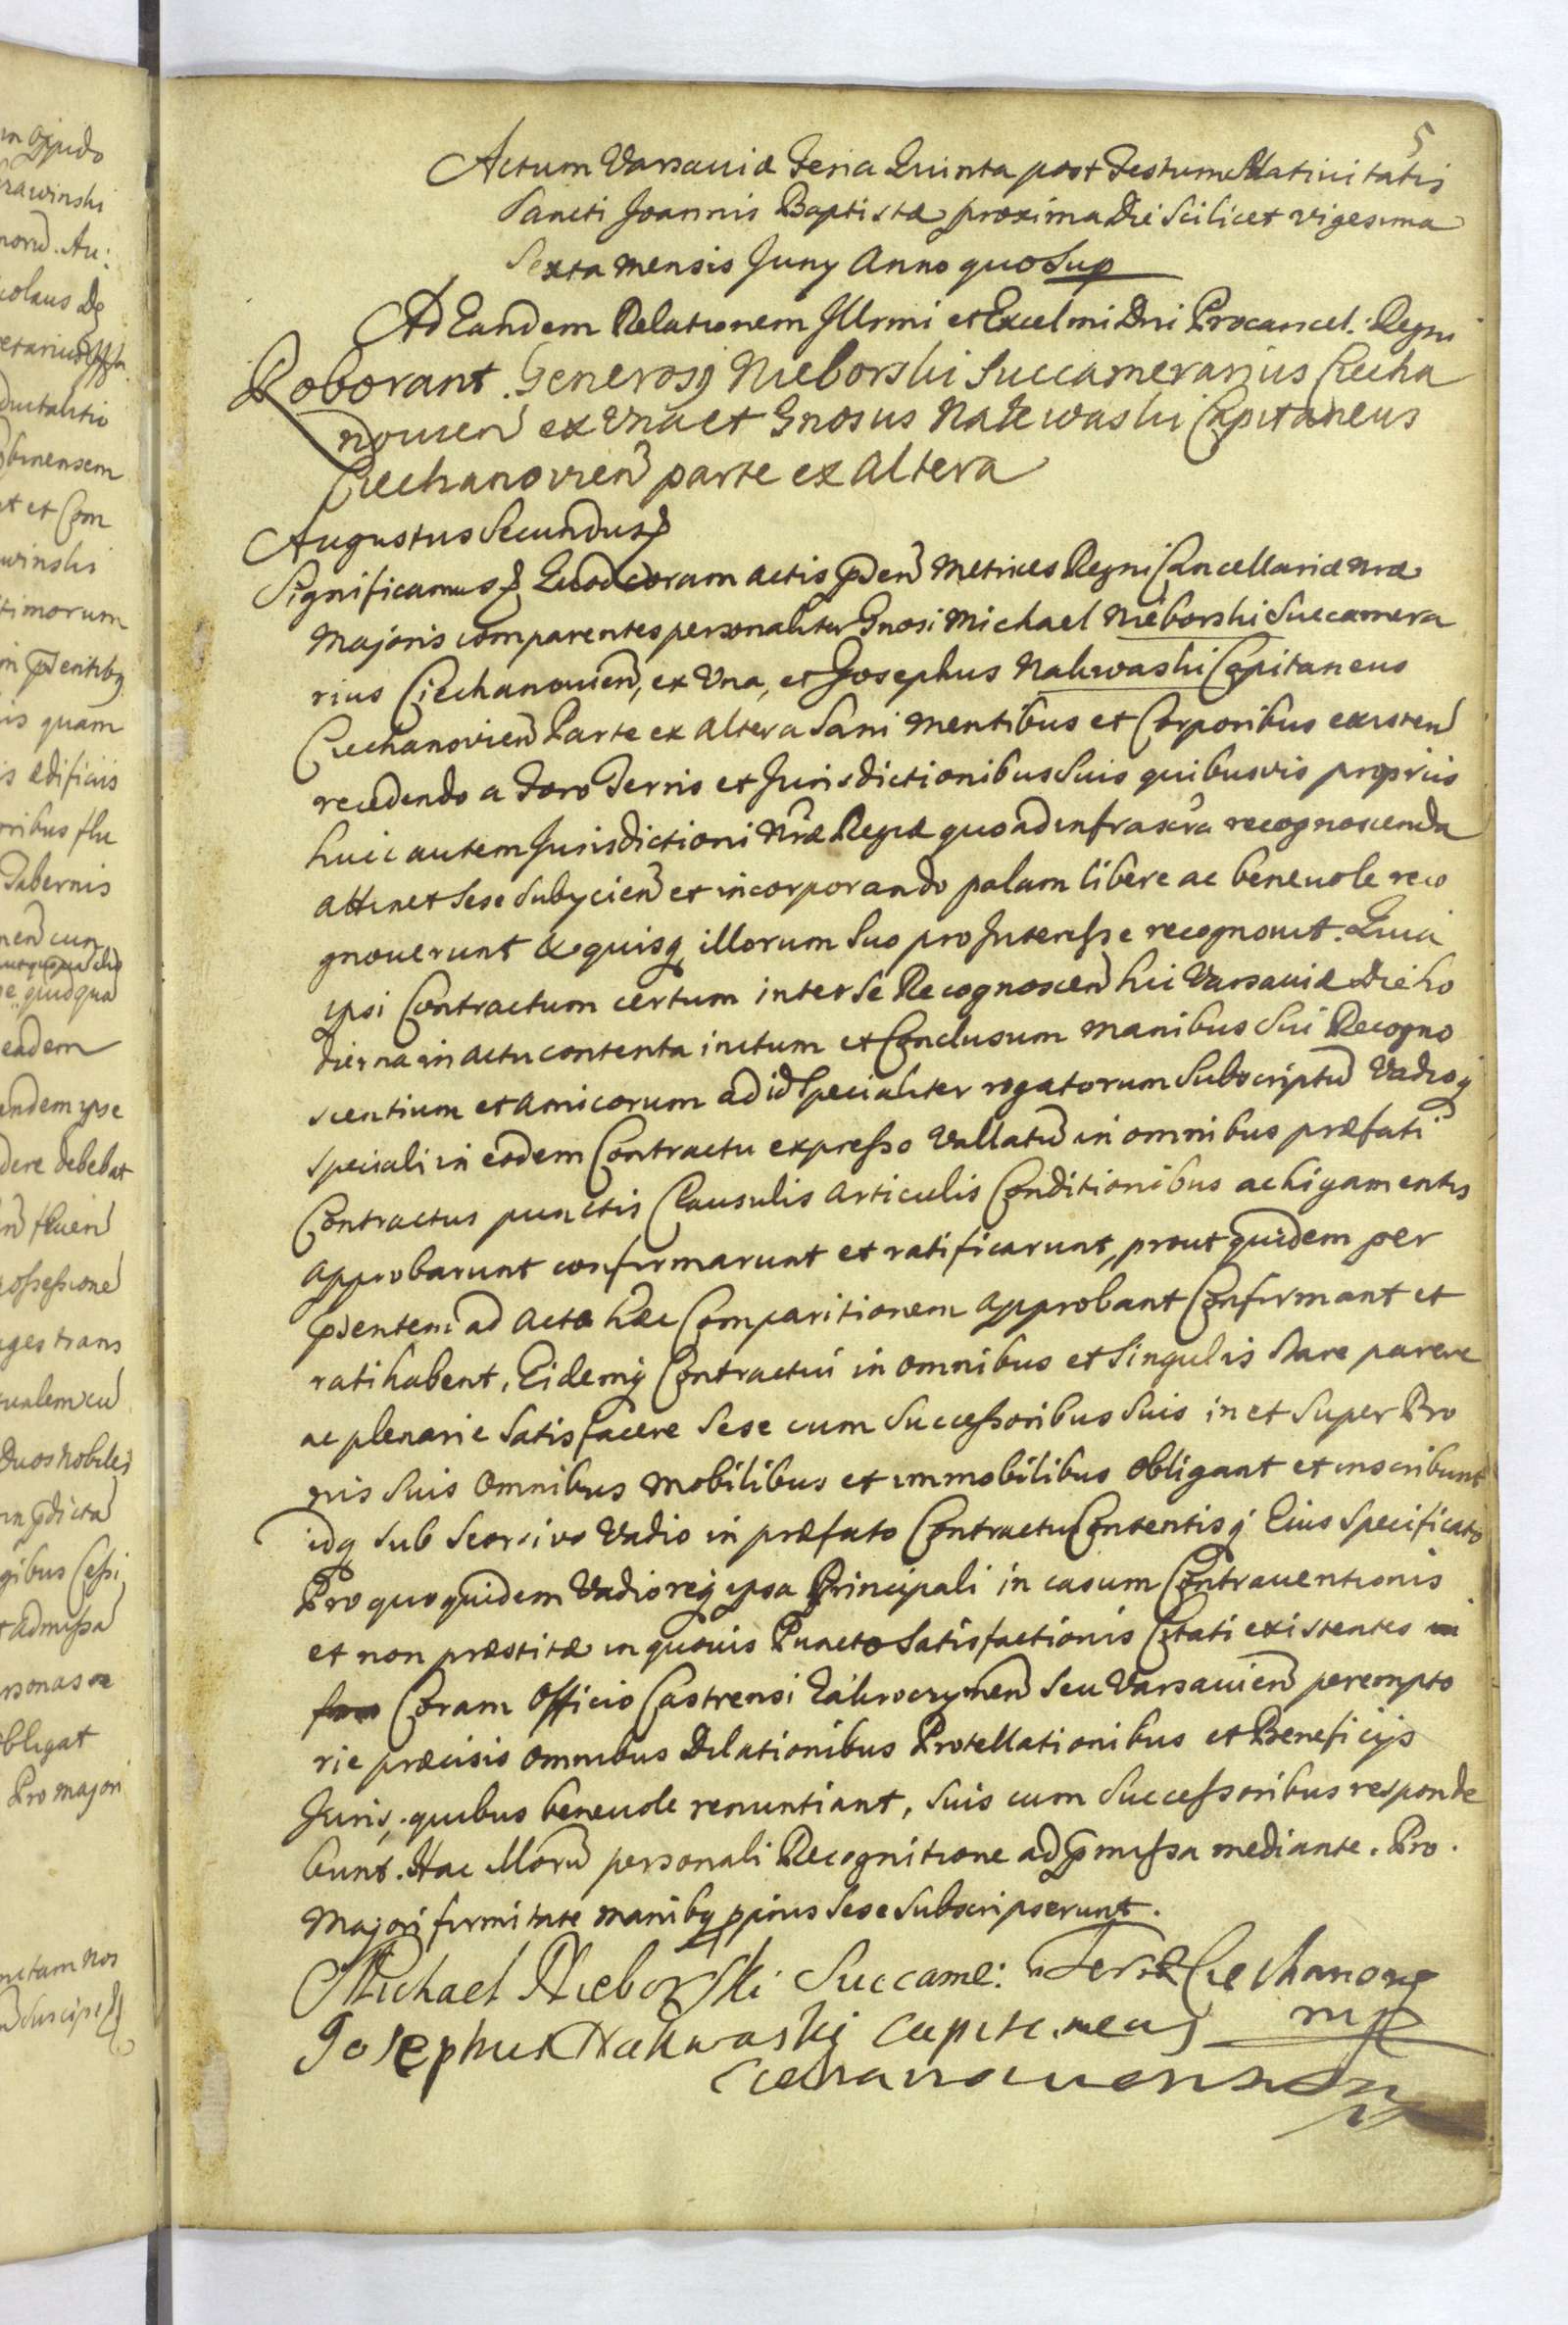 5
Actum Varsaviæ Feria Quinta post Festum Nativitatis
Sancti Joannis Baptistæ proxima Die Scilicet vigesima
Sexta mensis Juny Anno quo Sup
Ad Eandem Relationem Illrmi et Excelmi Dni Procancel: Regni
Roborant Generosy Nieborski Succamerarius Ciecha
novien ex Una et Gnosus Nakwaski Capitaneus
Ciechanovien parte ex altera
Augustus Secundus
Significamus Quod coram actis pden Metrices Regni Cancellariæ nræ
Majoris comparentes personaliter Gnosi Michael Nieborski Succamera
rius Ciechanovien, ex Una, et Josephus Nakwaski Capitaneus
Ciechanovien Parte ex altera Sani mentibus et Corporibus existen
recedendo a Foro Terris et Jurisdictionibus Suis quibusvis propriis
huic autem Jurisdictioni Nræ Regiæ quoad infrascra recognoscenda
attinet Sese Subycien et incorporando palam libere ac benevole reco
gnoverunt & quisq illorum Suo pro Interesse recognovit. Quia
ipsi Contractum certum inter Se Recognoscen hic Varsaviæ Die ho
dierna in actu contenta initum et Conclusum manibus Sui Recogno
scentium et amicorum ad id Specialiter rogatorum Subscriptu Vadioq
speciali in eodem Contractu expresso Vallatu in omnibus præfati
Contractus punctis Clausulis articulis Conditionibus ac ligamentis
approbarunt confirmarunt et ratificarunt, prout quidem per
pdentem ad acta hæc Comparitionem approbant Confirmant et
ratihabent, Eidemq Contractui in omnibus et Singulis Stare parere
ac plenarie Satisfacere Sese cum Successoribus Suis in et Super Bo
nis Suis Omnibus Mobilibus et immobilibus Obligant et inscribunt
idq sub Seorsivo Vadio in præfato Contractu Contentisq Eius Specificato
Pro quo quidem Vadio req ipsa Principali in casum Contraventionis
et non præstitæ in quovis Puncto Satisfactionis Citati existentes
Coram Officio Castrensi Zakroczymen Seu Varsavien perempto
rie præcisis omnibus Dilationibus Protellationibus et Beneficijs
Juris, quibus benevole renuntiant, Suis cum Successoribus responde
bunt. Hac illoru personali Recognitione ad pmissa mediante. Pro
Majori firmitate manibq ppriis Sese Subscripserunt.
Michael Nieborski Succame: Terræ Ciechanoug
mp
Josephus Nakwaski Capitaneus
Ciechanouensis

in oppido
rawinski
nord. Au:
colaus De
etarius
ductalitio
binensem
t et Com
winski
timorum
in pdentibq
is quam
is ædificiis
ribus flu
Tabernis
nen cum
e quidqua
eadem
andem ipse
dere debebat
n fluen
ossessione
ges trans
ualemcu
Duos Nobiles
in pdicta
gibus Cessi
t admissa
rsonas
bligat
Pro majori
nctam nos
Suscipi